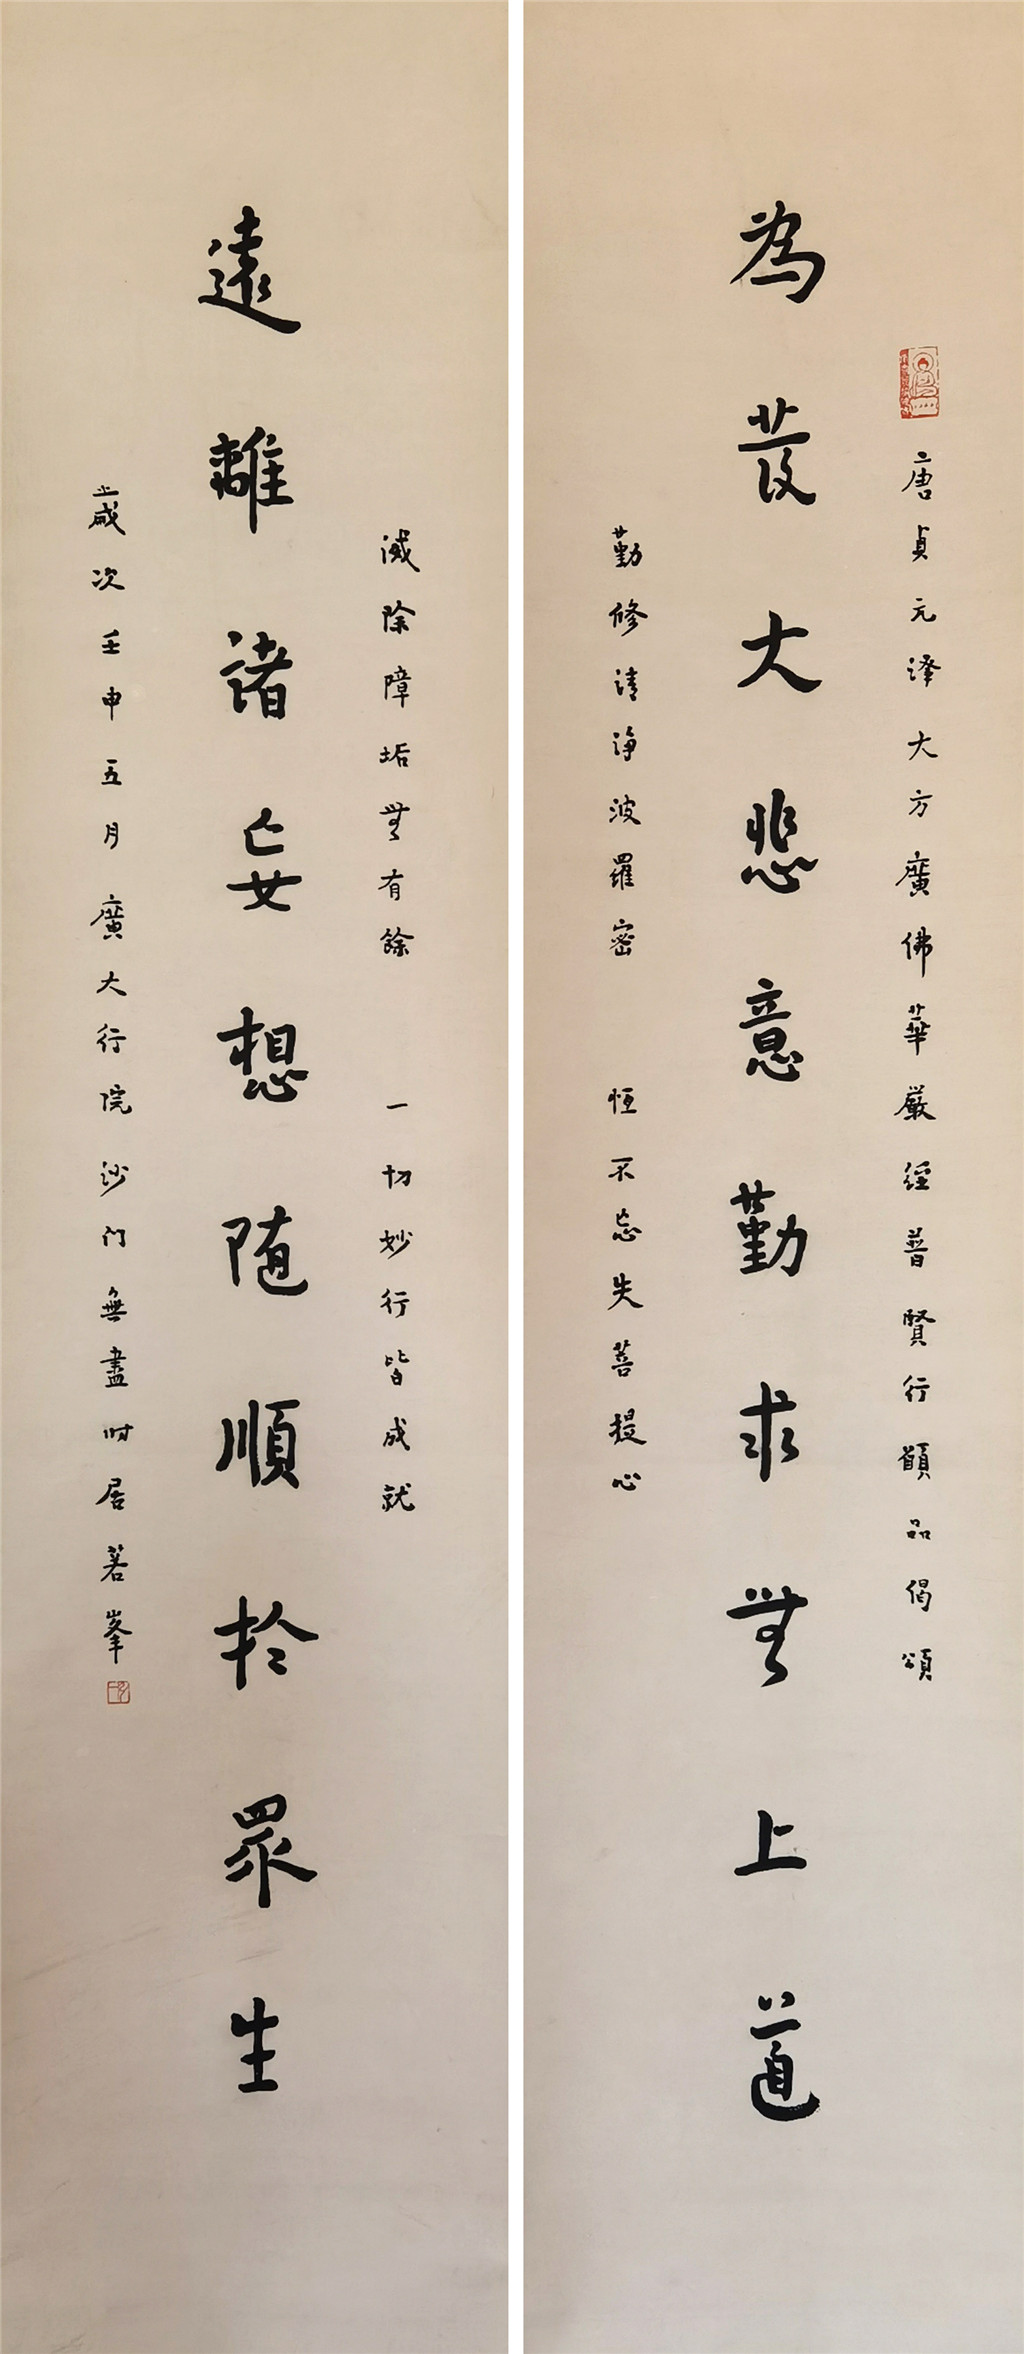 唐貞元譯大方廣佛華嚴経普賢行願品偈頌
為發大悲意勤求無上道
勤修清淨波羅密 恆不忘失菩提心
滅除障垢無有餘 一切妙行皆成就
遠離諸妄想随順於眾生
歲次壬申五月廣大行院沙门無盡时居茗峯